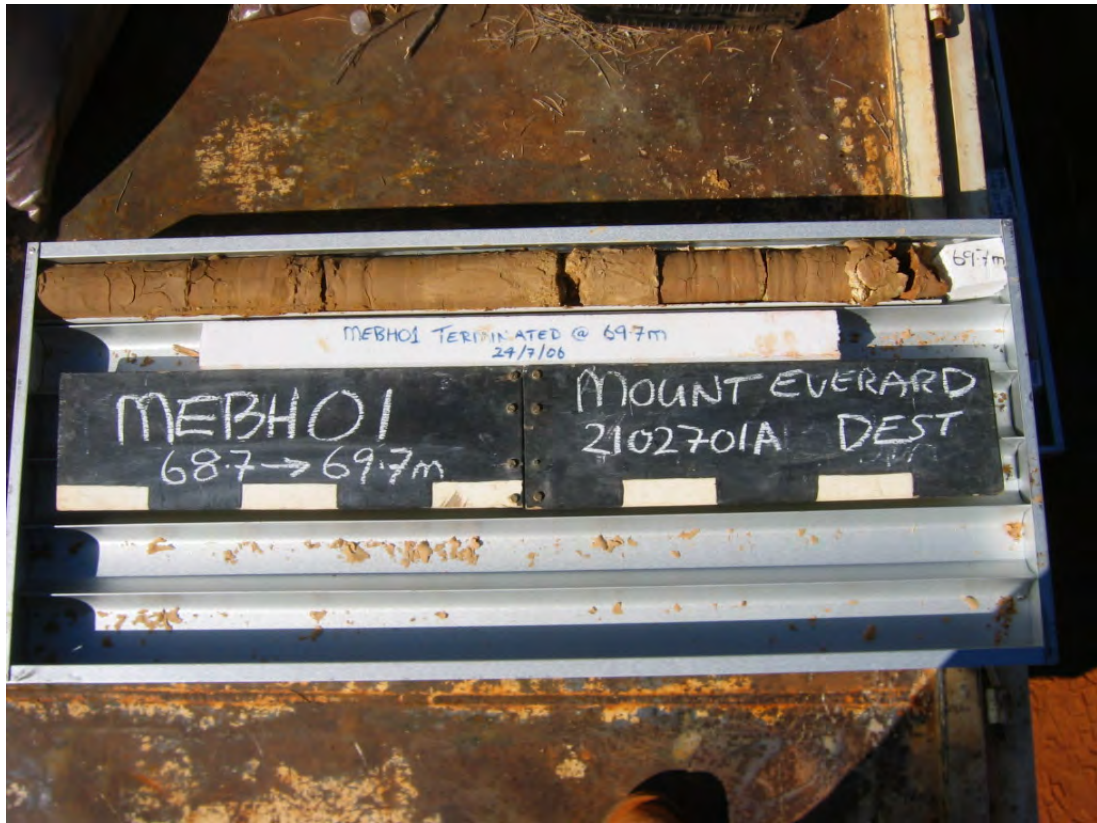 69.7m
MEBH01 TERMINATED @ 69.7m
24/7/06
MEBH01
68.7→69.7m
MOUNT EVERARD
2102701A DEST